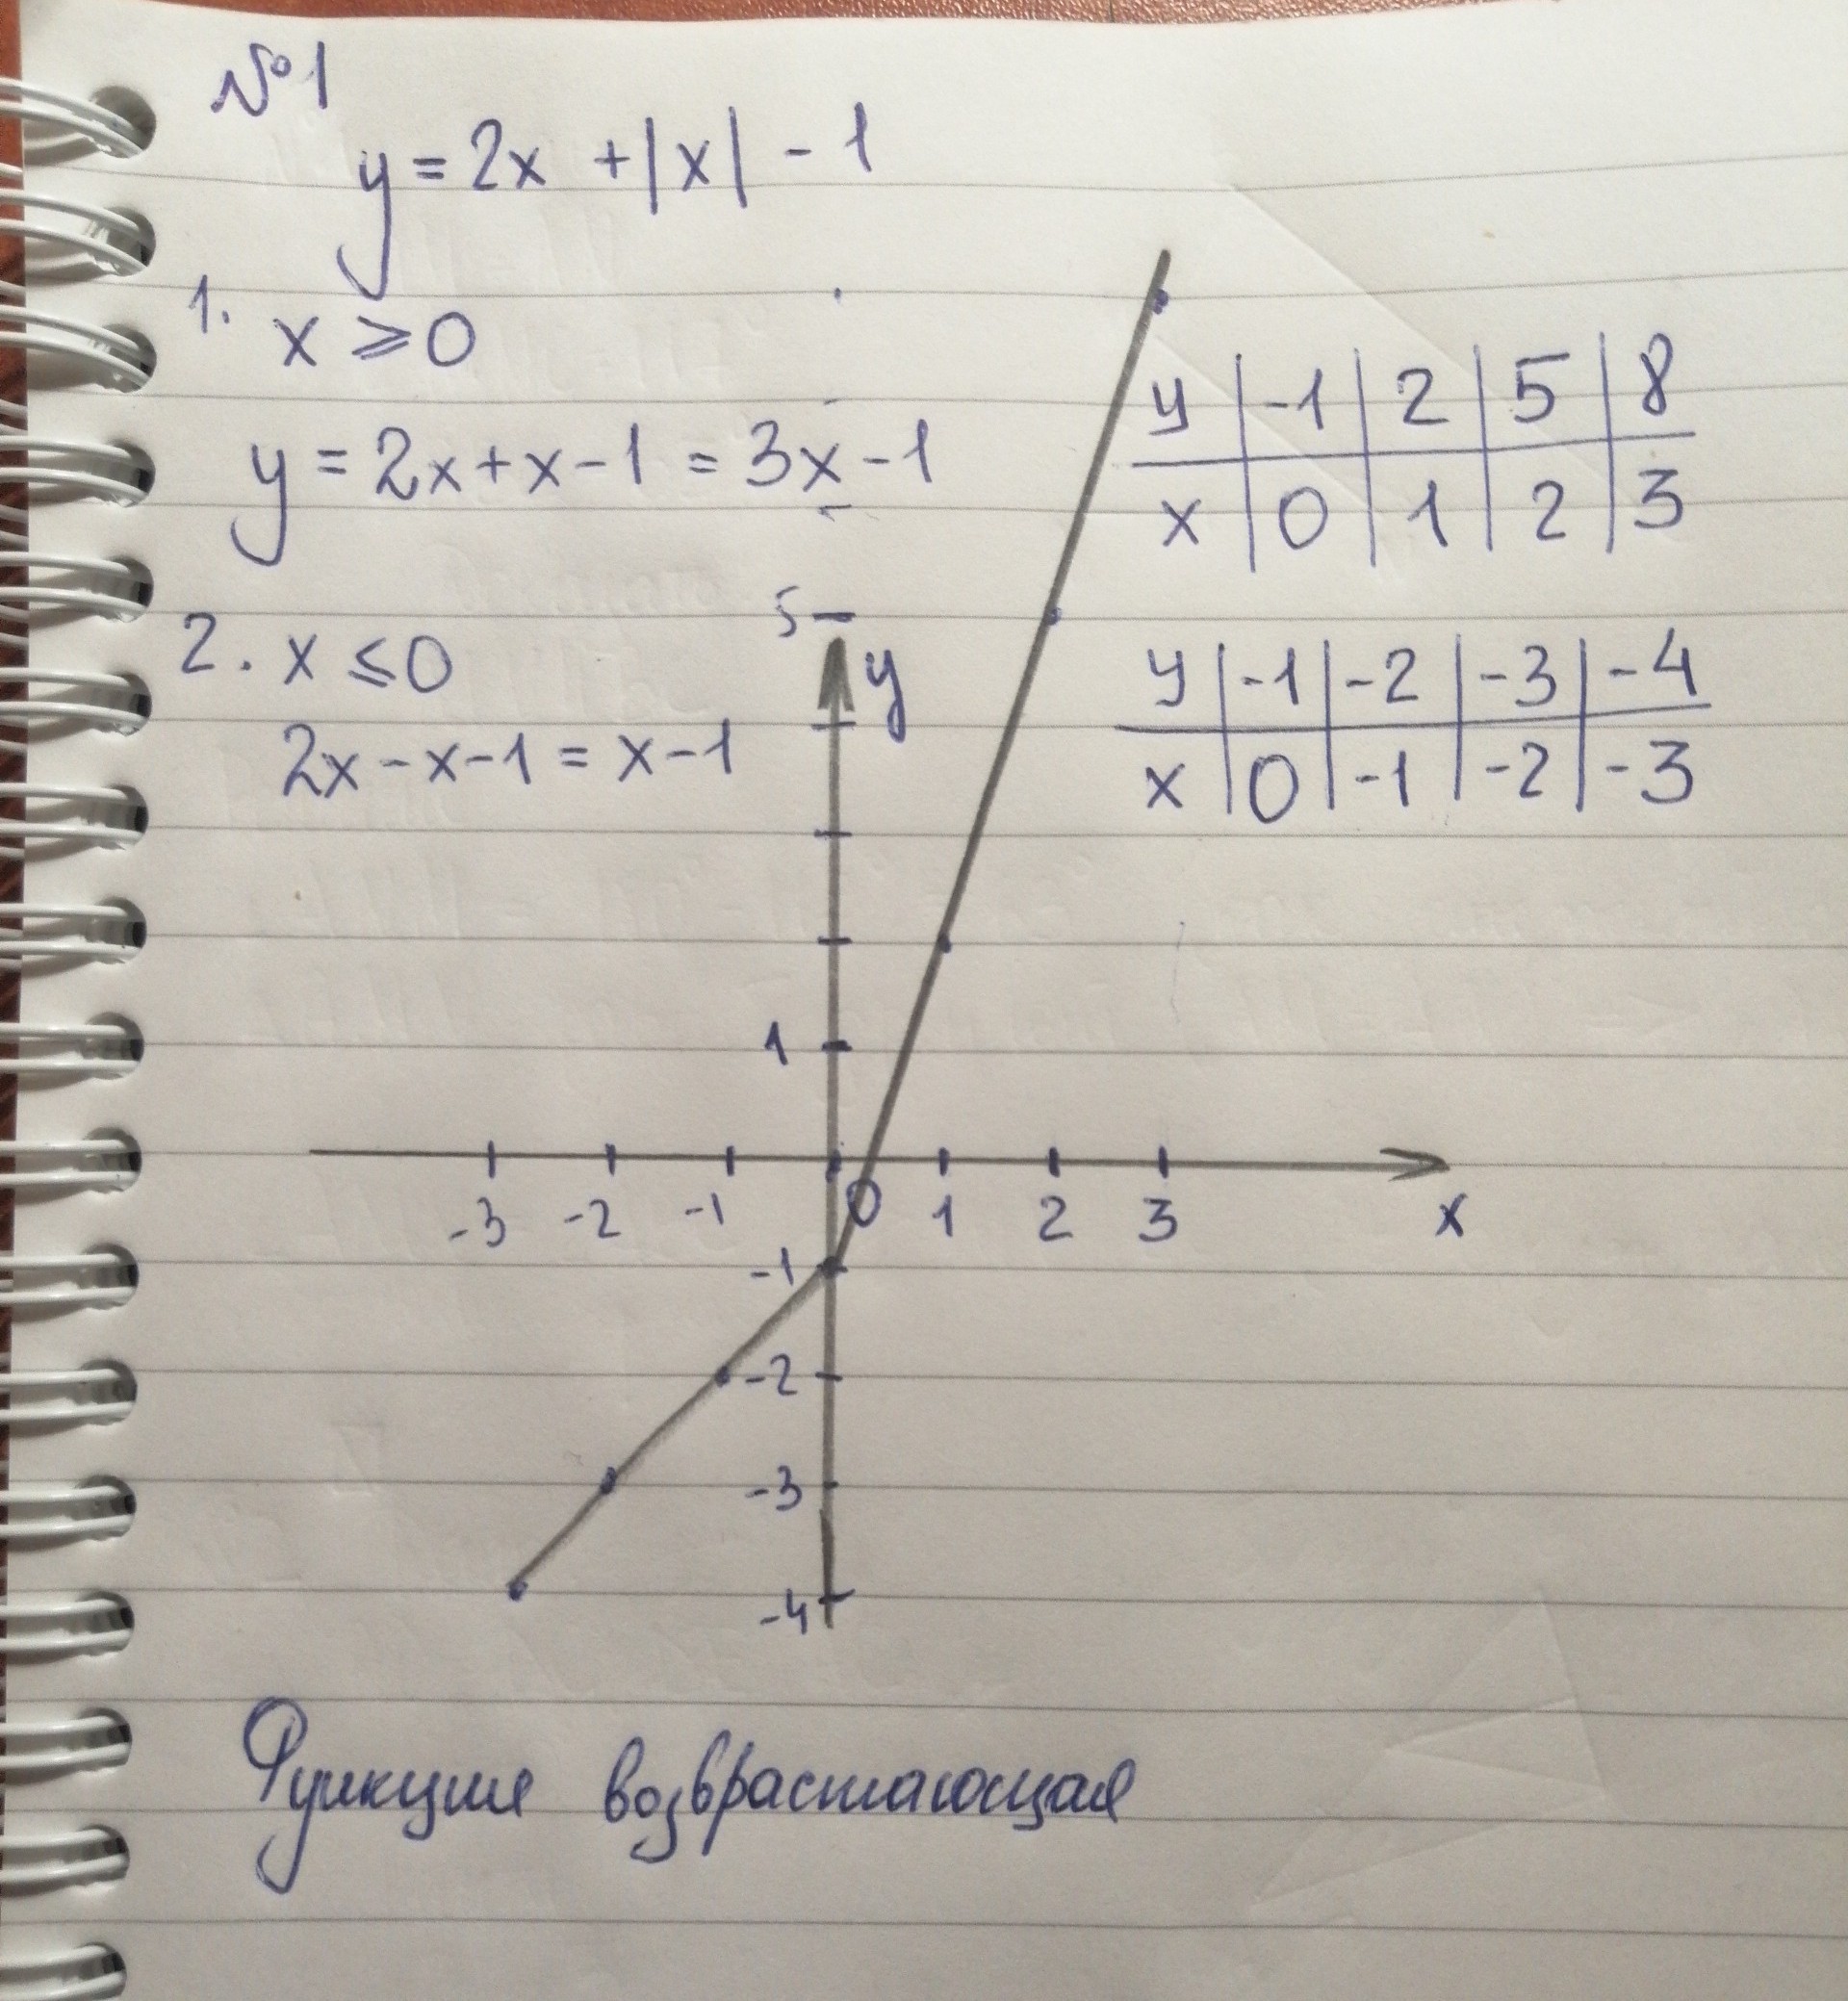 №1
y = 2x + |x| - 1
1. x ⩾ 0
y = 2x + x - 1 = 3x - 1
y | -1 | 2 | 5 | 8
x | 0 | 1 | 2 | 3
2. x ⩽ 0
2x - x - 1 = x - 1
y | -1 | -2 | -3 | -4
x | 0 | -1 | -2 | -3
5
y
1
-3 -2 -1 0 1 2 3 x
-1
-2
-3
-4
Функция возврастающая